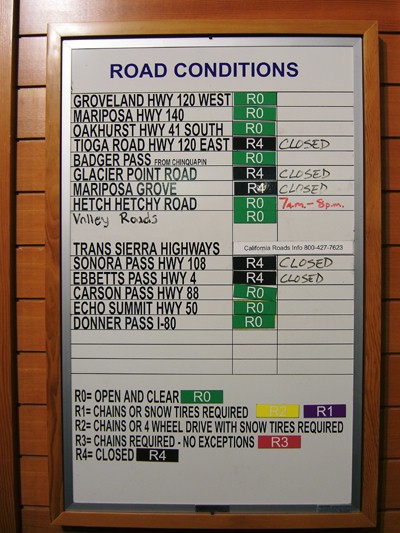 ROAD CONDITIONS
GROVELAND HWY 120 WEST R0
MARIPOSA HWY 140 R0
OAKHURST HWY 41 SOUTH R0
TIOGA ROAD HWY 120 EAST R4 CLOSED
BADGER PASS FROM CHINQUAPIN R0
GLACIER POINT ROAD R4 CLOSED
MARIPOSA GROVE R4 CLOSED
HETCH HETCHY ROAD R0 7am-8p.m.
Valley Roads R0
TRANS SIERRA HIGHWAYS California Roads Info 800-427-7623
SONORA PASS HWY 108 R4 CLOSED
EBBETTS PASS HWY 4 R4 CLOSED
CARSON PASS HWY 88 R0
ECHO SUMMIT HWY 50 R0
DONNER PASS I-80 R0
R0= OPEN AND CLEAR R0
R1= CHAINS OR SNOW TIRES REQUIRED R2 R1
R2= CHAINS OR 4 WHEEL DRIVE WITH SNOW TIRES REQUIRED
R3= CHAINS REQUIRED - NO EXCEPTIONS R3
R4= CLOSED R4